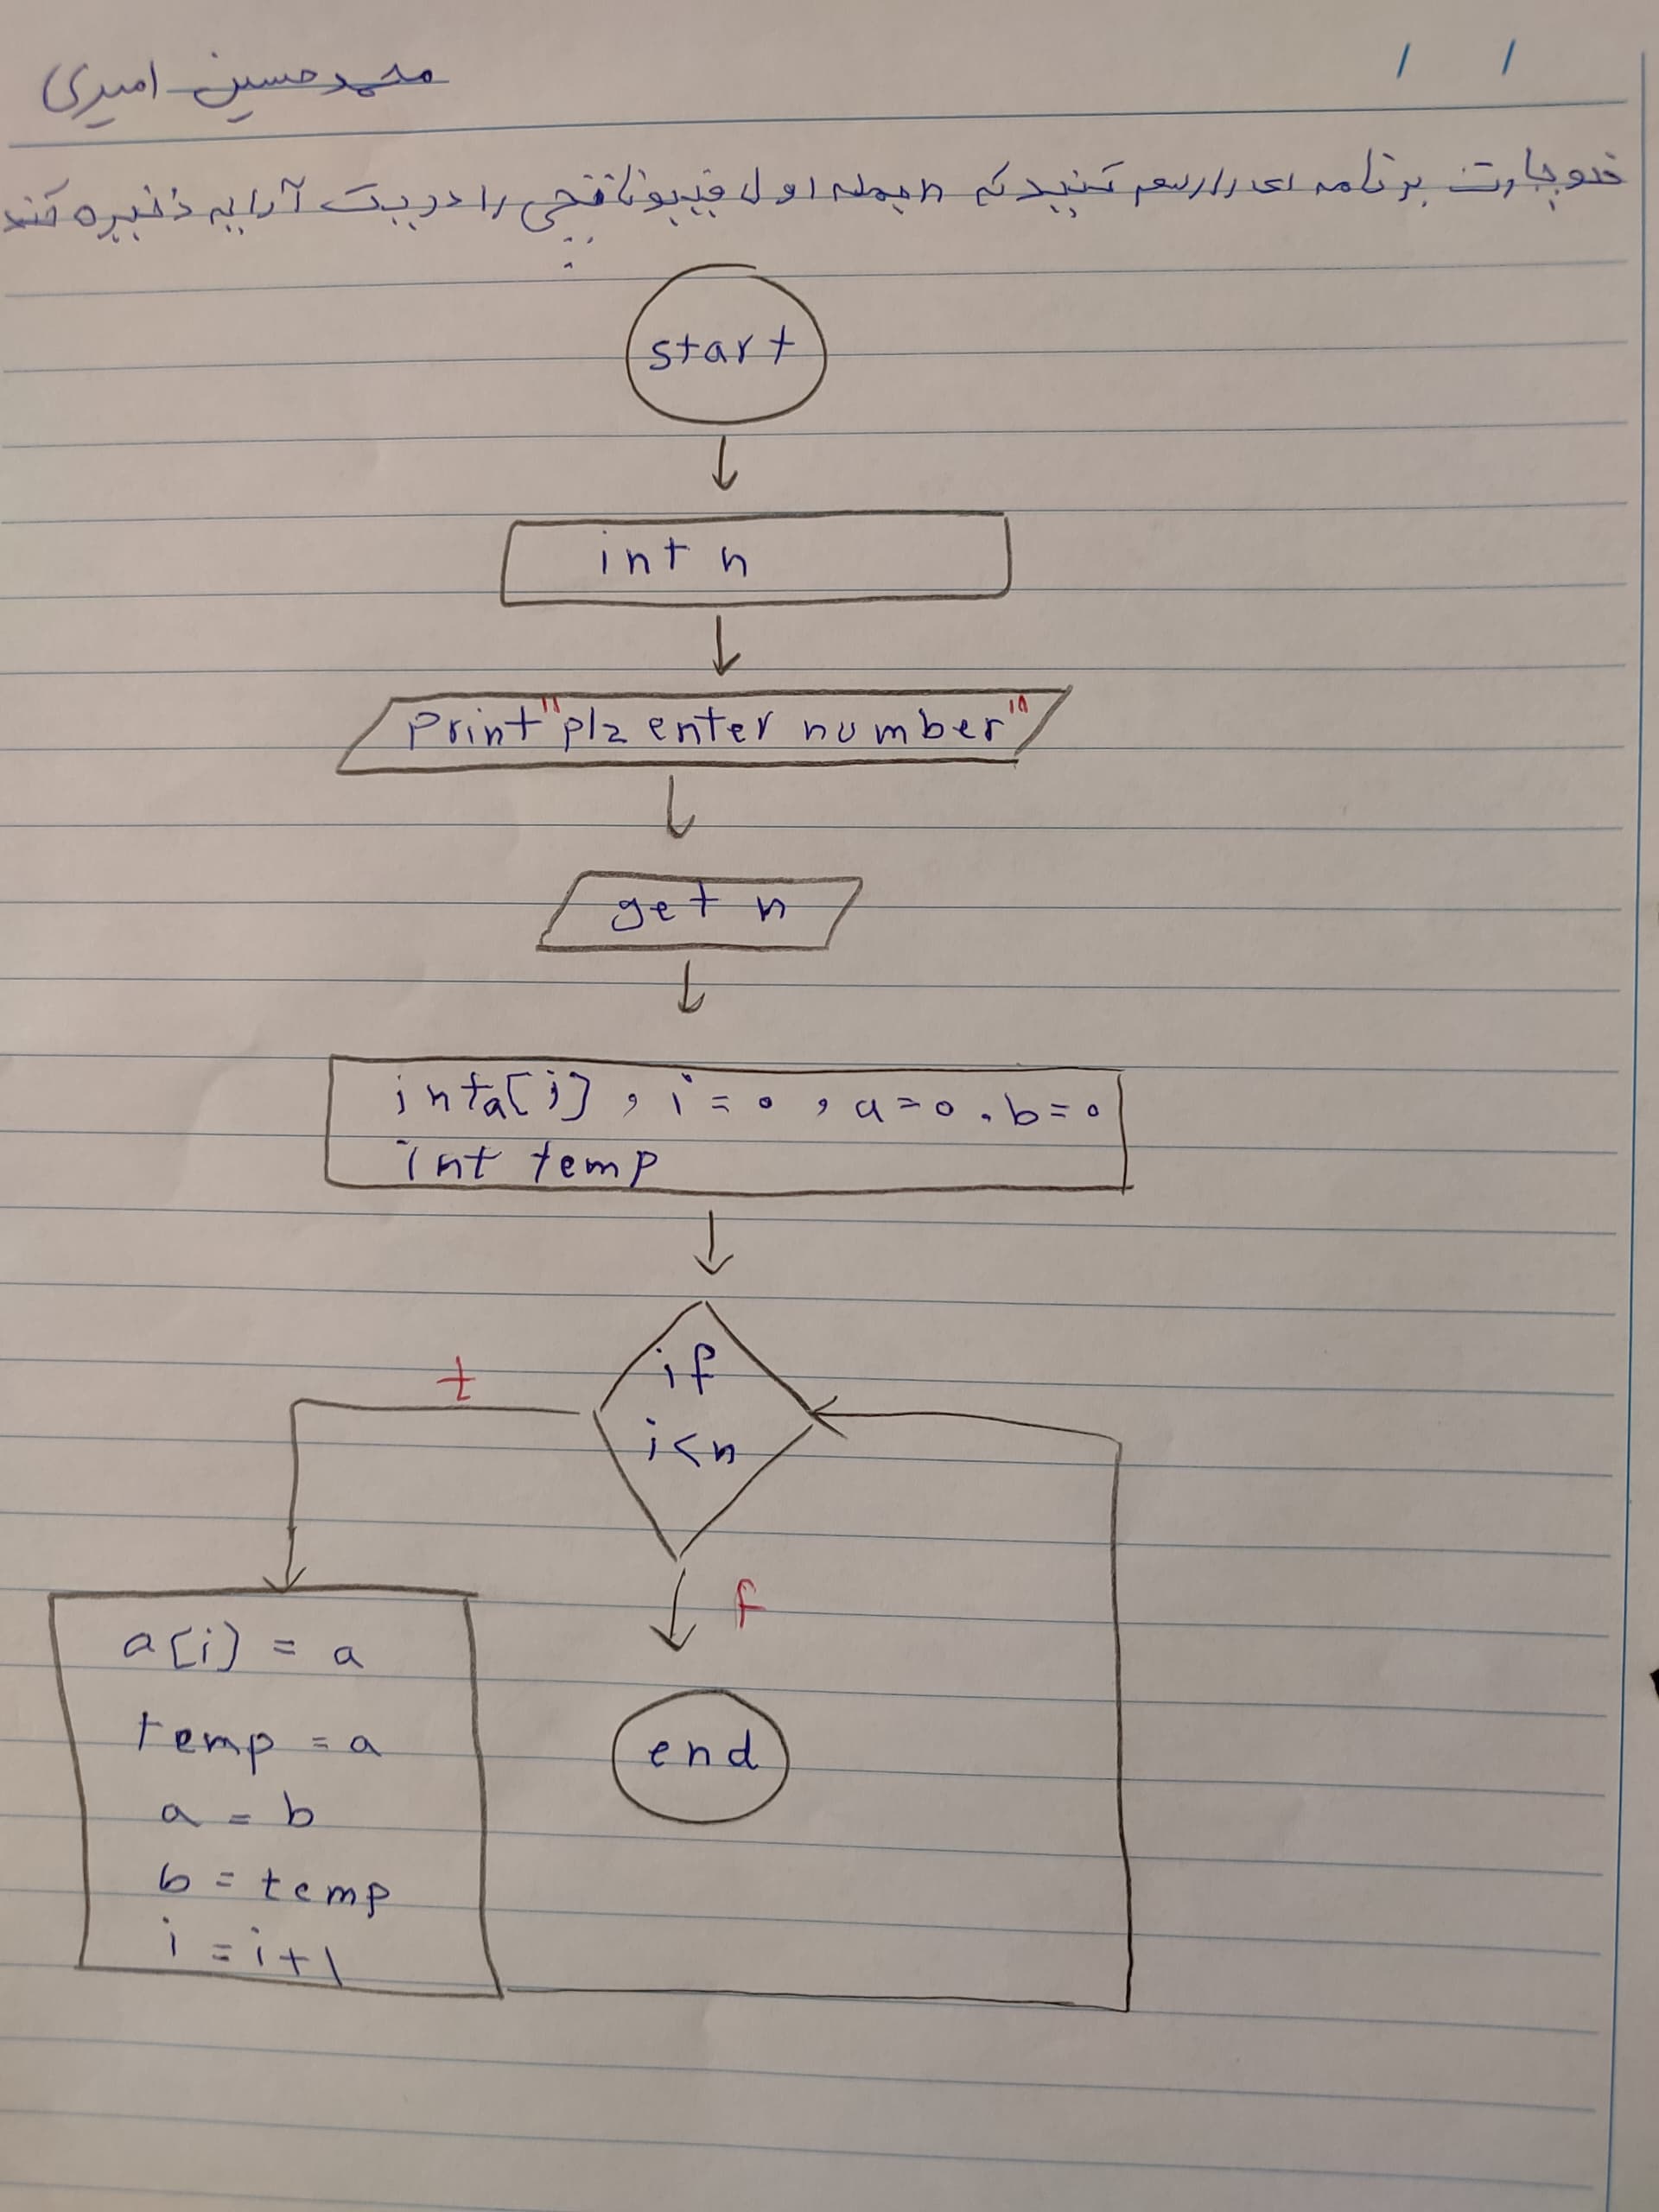 محمدحسین امیری
/ /
فلوچارت برنامه ای را رسم کنید که n جمله اول فیبوناچی را در یک آرایه ذخیره کند
start
int n
print "plz enter number"
get n
int a[i] , i = 0 , a = 0 , b = 0
int temp
if
i < n
t
f
a[i] = a
temp = a
a = b
b = temp
i = i + 1
end